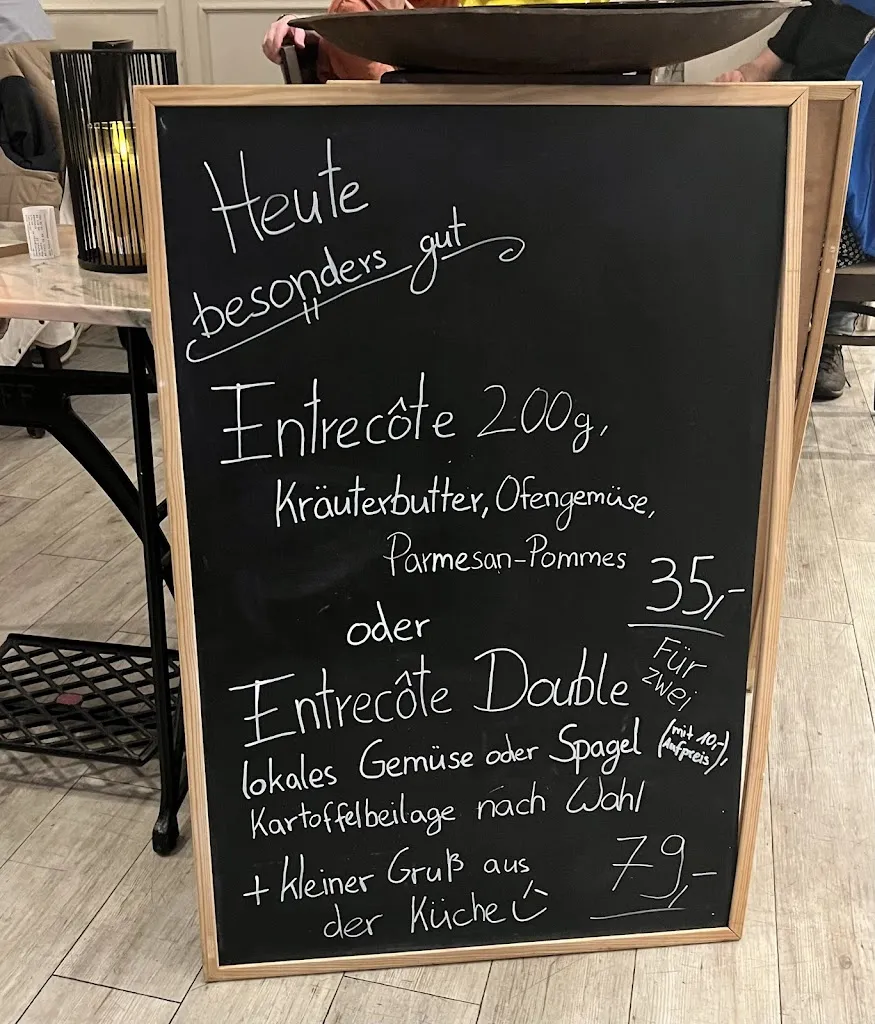 Heute
besonders gut
Entrecôte 200g,
Kräuterbutter, Ofengemüse,
Parmesan-Pommes
35,-
oder
Entrecôte Double
Für
zwei
lokales Gemüse oder Spagel (mit 10,-),
Aufpreis)
Kartoffelbeilage nach Wahl
+ kleiner Gruß aus
der Küche
79,-